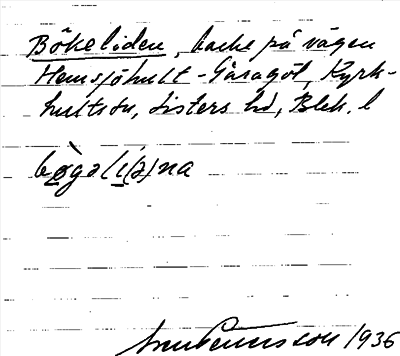 Bökeliden, backe på vägen
Hemsjöhult - Gäragöl, Kyrk-
hults sn, Listers hd, Blek. l
bø̀gəl(i(ə)na
Pettersson 1936